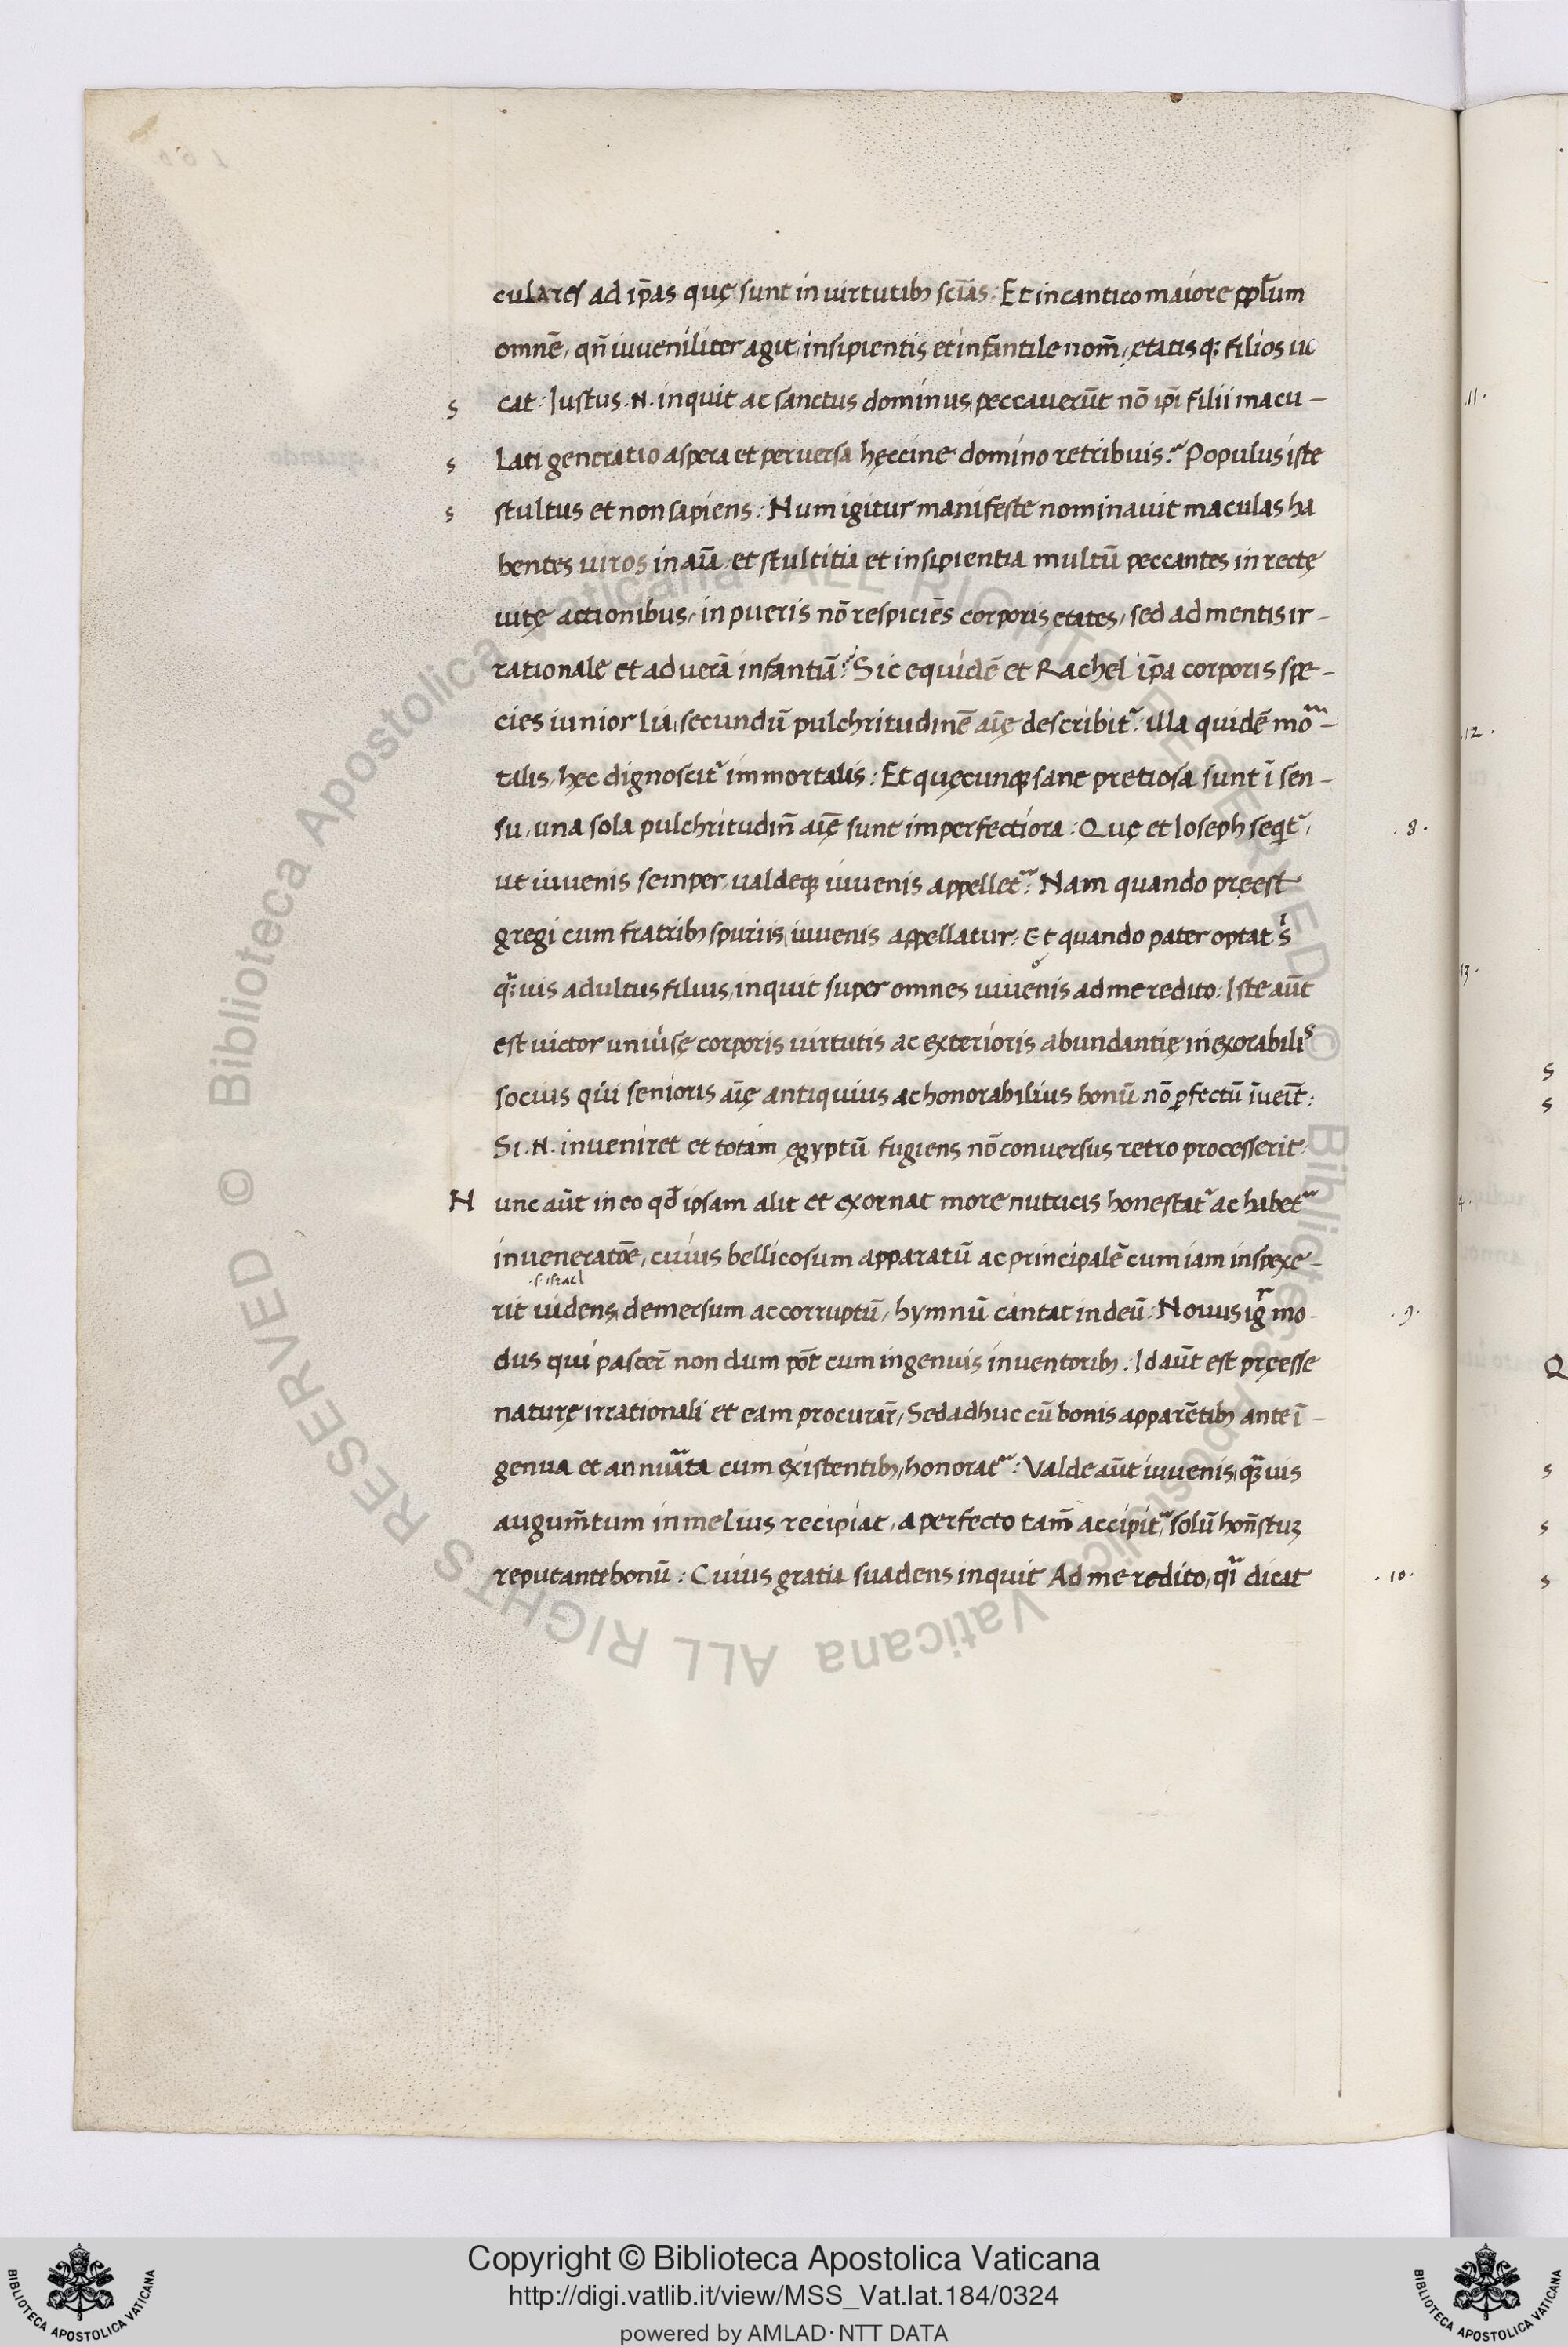 culares ad ip̄as quę sunt in uirtutibꝫ sciās: Et in cantico maiore pplūm
omnē, qn̄ iuueniliter agit, insipientis et infantile nom̄, ętatis qꝫ filios uo
s cat: Iustus .N. inquit ac sanctus dominus, peccauerūt nō ip̄i filii macu–
s Lati generatio aspera et peruersa hęccine domino retribuis? Populus iste
s stultus et non sapiens: Num igitur manifeste nominauit maculas ha
bentes uiros in aīa et stultitia et insipientia multū peccantes in rectę
uitę actionibus, in pueris nō respiciēs corporis ętates, sed ad mentis ir–
rationale et ad uerā infantiā? Sic equidē et Rachel ip̄a corporis spe–
cies iunior Lia, secundū pulchritudinē aīę describit᷑: illa quidē mor–
talis, hęc dignoscit᷑ immortalis: Et quęcunqꝫ sane pretiosa sunt ī sen–
su, una sola pulchritudin̄ aīę sunt imperfectiora: Quę et Ioseph seqt᷑, .8.
ut iuuenis semper, ualdeqꝫ iuuenis appellet᷑: Nam quando pręest
gregi cum fratribꝫ spuriis, iuuenis appellatur: Et quando pater optat s
qꝫuis adultus filius, inquit super omnes iuuenis ad me redito: Iste aūt
est uictor uniuersę corporis uirtutis ac exterioris abundantię inexorabilis
socius qui senioris aīę antiquius ac honorabilius bonū nō ꝑfectū īueīt:
Si .N. inueniret et totam ęgyptū fugiens nō conuersus retro processerit:
Nunc aūt in eo qd̄ ipsam alit et exornat more nutricis honestat᷑ ac habet᷑
in ueneratōe, cuius bellicosum apparatū ac principalē cum iam inspexe–
.s. israel
rit uidens, demersum ac corruptū, hymnū cantat in deū: Nouus igr̄ mo– .9.
dus qui pascer̄ non dum pōt cum ingenuis inuentoribꝫ. Id aūt est pręesse
naturę irrationali et eam procurar̄, Sed adhuc cū bonis apparētibꝫ ante ī–
genua et annu͛ata cum existentibꝫ, honorat᷑: Valde aūt iuuenis, qꝫuis
augum̄tum in melius recipiat, a perfecto tam̄ accipit᷑, solū hon̄stuꝫ
reputante bonū: Cuius gratia suadens inquit Ad me redito, qͣi dicat .10.
11.
12.
13.
s
s
Q
s
s
s
Copyright © Biblioteca Apostolica Vaticana
http://digi.vatlib.it/view/MSS_Vat.lat.184/0324
powered by AMLAD·NTT DATA
BIBLIOTECA APOSTOLICA VATICANA
BIBLIOTECA APOSTOLICA VATICANA
© Biblioteca Apostolica Vaticana ALL RIGHTS RESERVED © Biblioteca Apostolica Vaticana ALL RIGHTS RESERVED